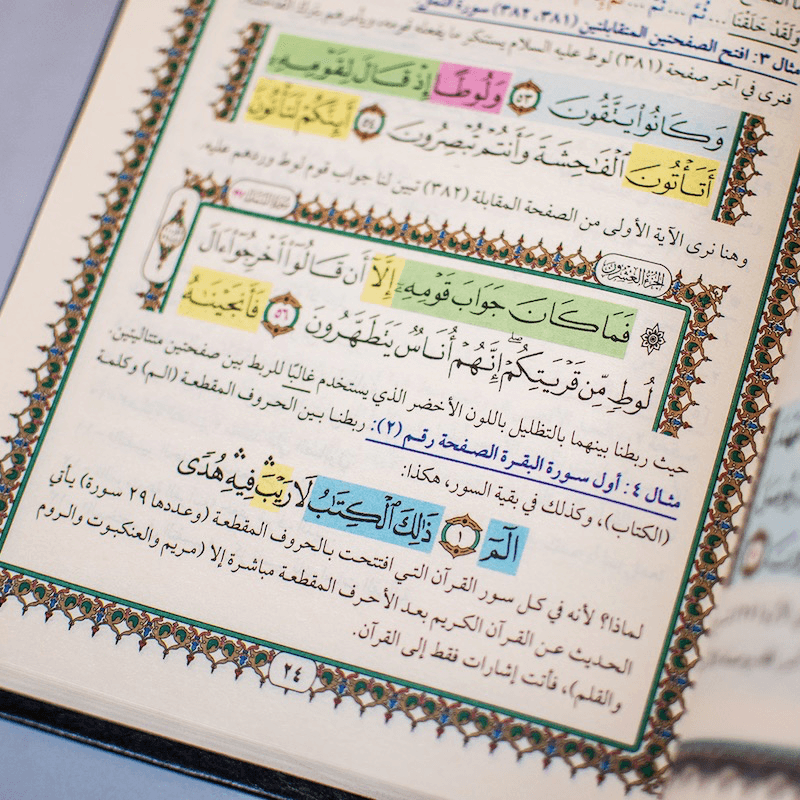 وَلَقَدْ خَلَقْنَا
مثال ٣: افتح الصفحتين المتقابلتين (٣٨١، ٣٨٢) سورة النمل
فنرى في آخر صفحة (٣٨١) لوط عليه السلام يستنكر ما يفعله قومه
وَكَانُوا۟ يَتَّقُونَ ٥٣ وَلُوطًا إِذْ قَالَ لِقَوْمِهِۦٓ
أَتَأْتُونَ ٱلْفَـٰحِشَةَ وَأَنتُمْ تُبْصِرُونَ ٥٤ أَئِنَّكُمْ لَتَأْتُونَ
وهنا نرى الآية الأولى من الصفحة المقابلة (٣٨٢) تبين لنا جواب قوم لوط وردهم عليه.
الجزء العشرون
فَمَا كَانَ جَوَابَ قَوْمِهِۦٓ إِلَّآ أَن قَالُوٓا۟ أَخْرِجُوٓا۟ ءَالَ
لُوطٍ مِّن قَرْيَتِكُمْ ۖ إِنَّهُمْ أُنَاسٌ يَتَطَهَّرُونَ ٥٦ فَأَنجَيْنَـٰهُ
حيث ربطنا بينهما بالتظليل باللون الأخضر الذي يستخدم غالبًا للربط بين صفحتين متتاليتين.
مثال ٤: أول سورة البقرة الصفحة رقم (٢): ربطنا بين الحروف المقطعة (الم) وكلمة
(الكتاب)، وكذلك في بقية السور، هكذا:
الٓمٓ ١ ذَٰلِكَ ٱلْكِتَـٰبُ لَا رَيْبَ ۛ فِيهِ ۛ هُدًى
لماذا؟ لأنه في كل سور القرآن التي افتتحت بالحروف المقطعة (وعددها ٢٩ سورة) يأتي
الحديث عن القرآن الكريم بعد الأحرف المقطعة مباشرة إلا (مريم والعنكبوت والروم
والقلم)، فأتت إشارات فقط إلى القرآن.
٢٤